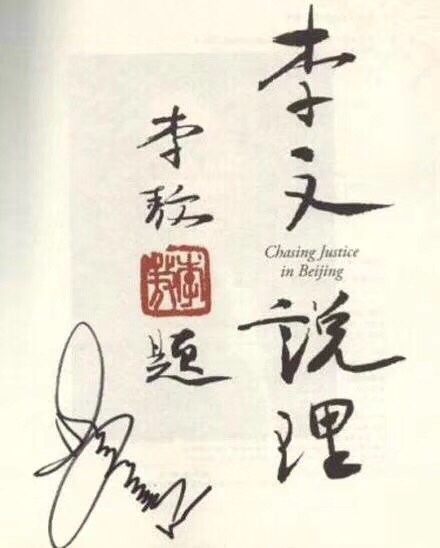 李文
Chasing Justice
in Beijing
說理
李敖
李敖
題